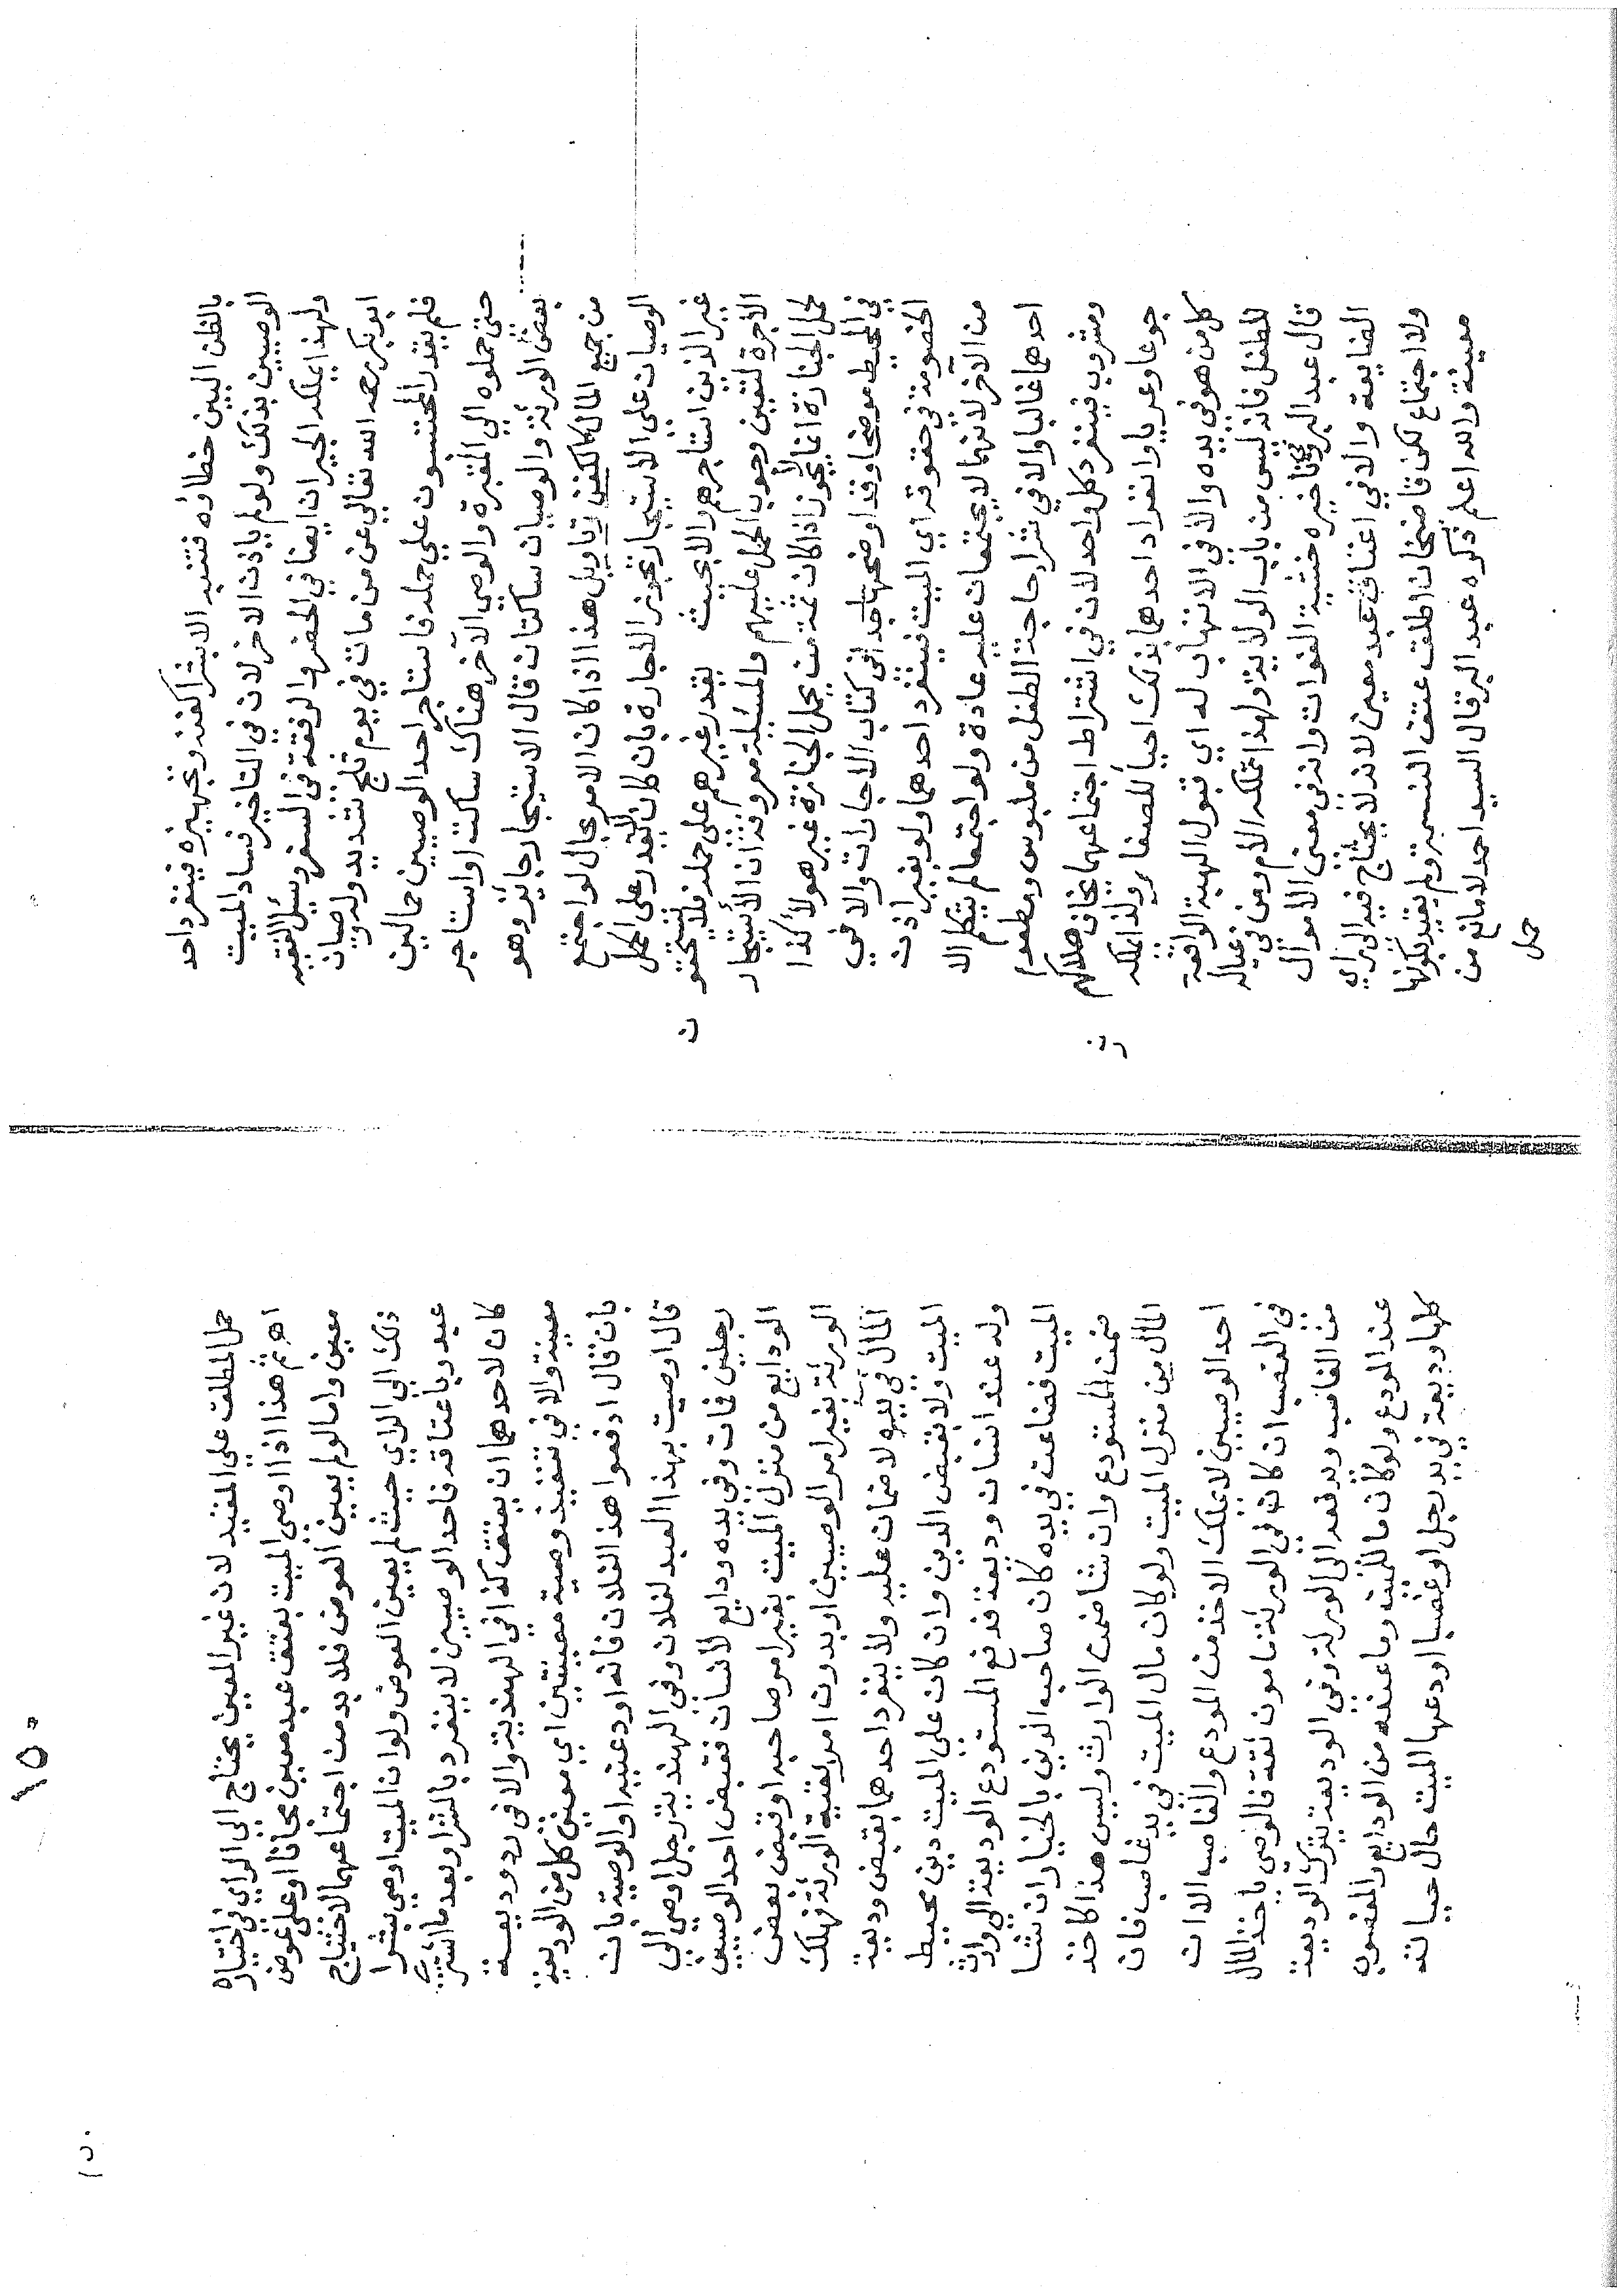 بالظن البين خطاؤه فتنبه الا بشرا كفنه وتجهيزه فينفرد احد
الوصيين بذلك ولو لم ياذن الاخر لان في التاخير فساد الميت
ولهذا يملكه الجيران ايضا في الحضر والرفقة في السفر وسئل الفقيه
ابو بكر رحمه الله تعالى عن من مات في يوم ثلج شديد وله وصيان
فلم يقدر المحتسبون علي حمله فاستاجر احد الوصيين حمالين
حتى حملوه الي المقبرة والوصي الآخر هناك ساكت او استاجر
بعض الورثة والوصيان ساكتان قال الاستيجار جايز وهو
من جميع المال كالكفن تاويل هذا اذا كان الامر بحال لو اجتمع
الوصيان على الاستيجار تجوز الاجارة بان كان لا يقدر على الحمل
غير الذين استاجرهم والا بحيث يقدر غيرهم على حمله فلا يستحقو
الاجرة لتعين وجوب الحمل عليهم والمسئلة معروفة ان الاستيجار
لحمل الجنازة انما يجوز اذا كان ثمة من يحمل الجنازة غير هولا كذا
في المحيط موضحا وقد اوضحها جدا في كتاب الاجارات والا في
الخصومة في حقوقه اي الميت فينفرد احدهما ولو بغير اذن
من الآخر لانهما لا يجتمعان عليه عادة ولو اجتمعا لم يتكلم الا
احدهما غالبا والا في شراء حاجة الطفل من ملبوس ومطعوم
ومشروب فينفرد كل واحد لان في اشتراط اجتماعهما يخاف هلاكهم
جوعا وعريا وانفراد احدهما بذلك احيا للصغار ولذا يملكه
كل من هو في يده والا في الاتهاب له اي قبول الهبة الواقعة
للطفل فانه ليس من باب الولاية ولهذا تملكه الام ومن في عياله
قال عبد البر وفي تاخيره خشية الفوات وانه في معنى الاموال
الضايعة والا في اعتاق عبد معين لانه لا يحتاج فيه الي راي
ولا اجتماع لكن قاضيخان اطلق عتق النسمة ولم يقيد بكونها
معينة والله اعلم ذكره عبد البر قال السيد احمد لا مانع من
حمل
ن
ن
١٥٠
حمل المطلق علي المقيد لان غير المعين يحتاج الي الراي في اختياره
اهـ ثم هذا اذا اوصي الميت بعتق عبد معين مجانا او علي عوض
معين واما لو لم يعين العوض فلا بد من اجتماعهما لاحتياج
ذلك الي الراي حيث لم يعين العوض ولو ان الميت اوصي بشرا
عبد وباعتاقه فاحد الوصيين لا ينفرد بالشرا وبعد ما اشتريا
كان لاحدهما ان يعتق كذا في الهندية والا في رد وديعة
معينة والا في تنفيذ وصية معينتين اي معين كل من الوديعة
بان قال ادفعوا هذا لفلان فانه اودعنيه او الوصية بان
قال اوصيت بهذا العبد لفلان وفي الهندية رجل اوصي الي
رجلين فمات وفي يده ودايع لانسان فقبض احد الوصيين
الودايع من منزل الميت بغير امر صاحبه او قبض بعض
الورثة بغير امر الوصيين او بدون امر بقية الورثة فهلك
المال في يده لا ضمان عليه ولا ينفرد احدهما بقبض وديعة
الميت ولا بقبض الدين وان كان علي الميت دين محيط
وله عند انسان وديعة فدفع المستودع الوديعة الي وارث
الميت فضاعت في يده كان صاحب الدين بالخيار ان شا
ضمن المستودع وان شا ضمن الوارث وليس هذا كاخذ
المال من منزل الميت ولو كان مال الميت في يد غاصب فان
احد الوصيين لا يملك الاخذ من المودع والغاصب الا ان
في الغصب ان كان في الورثة مامون ثقة فالوصي ياخذ المال
من الغاصب ويدفعه الي الورثة وفي الوديعة يترك الوديعة
عند المودع ولو كان ما للميت وما عنده من الودايع والمغصوب
كلها وديعة في يد رجل او غصبا اودعها الميت حال حياته